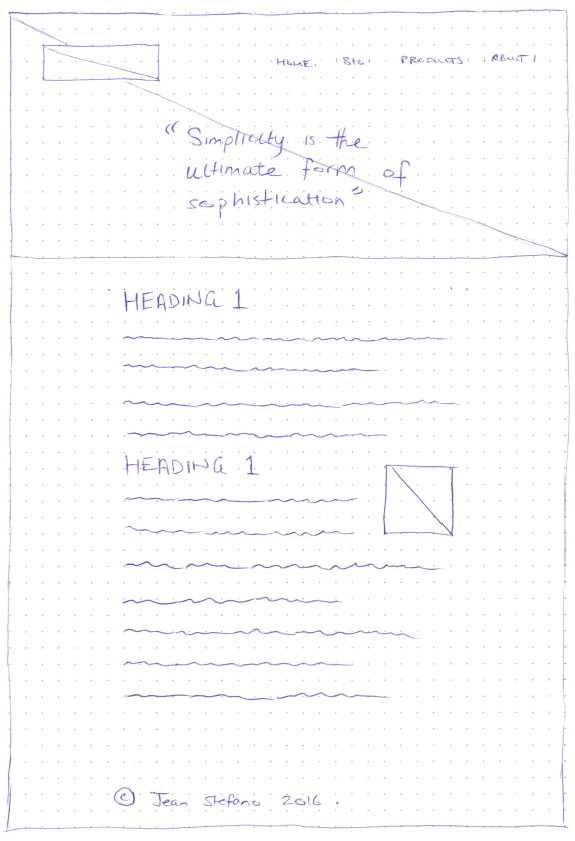 HOME. BIO. PRODUCTS. ABOUT
"Simplicity is the
ultimate form of
sophistication"
HEADING 1
HEADING 1
© Jean Stefano 2016.